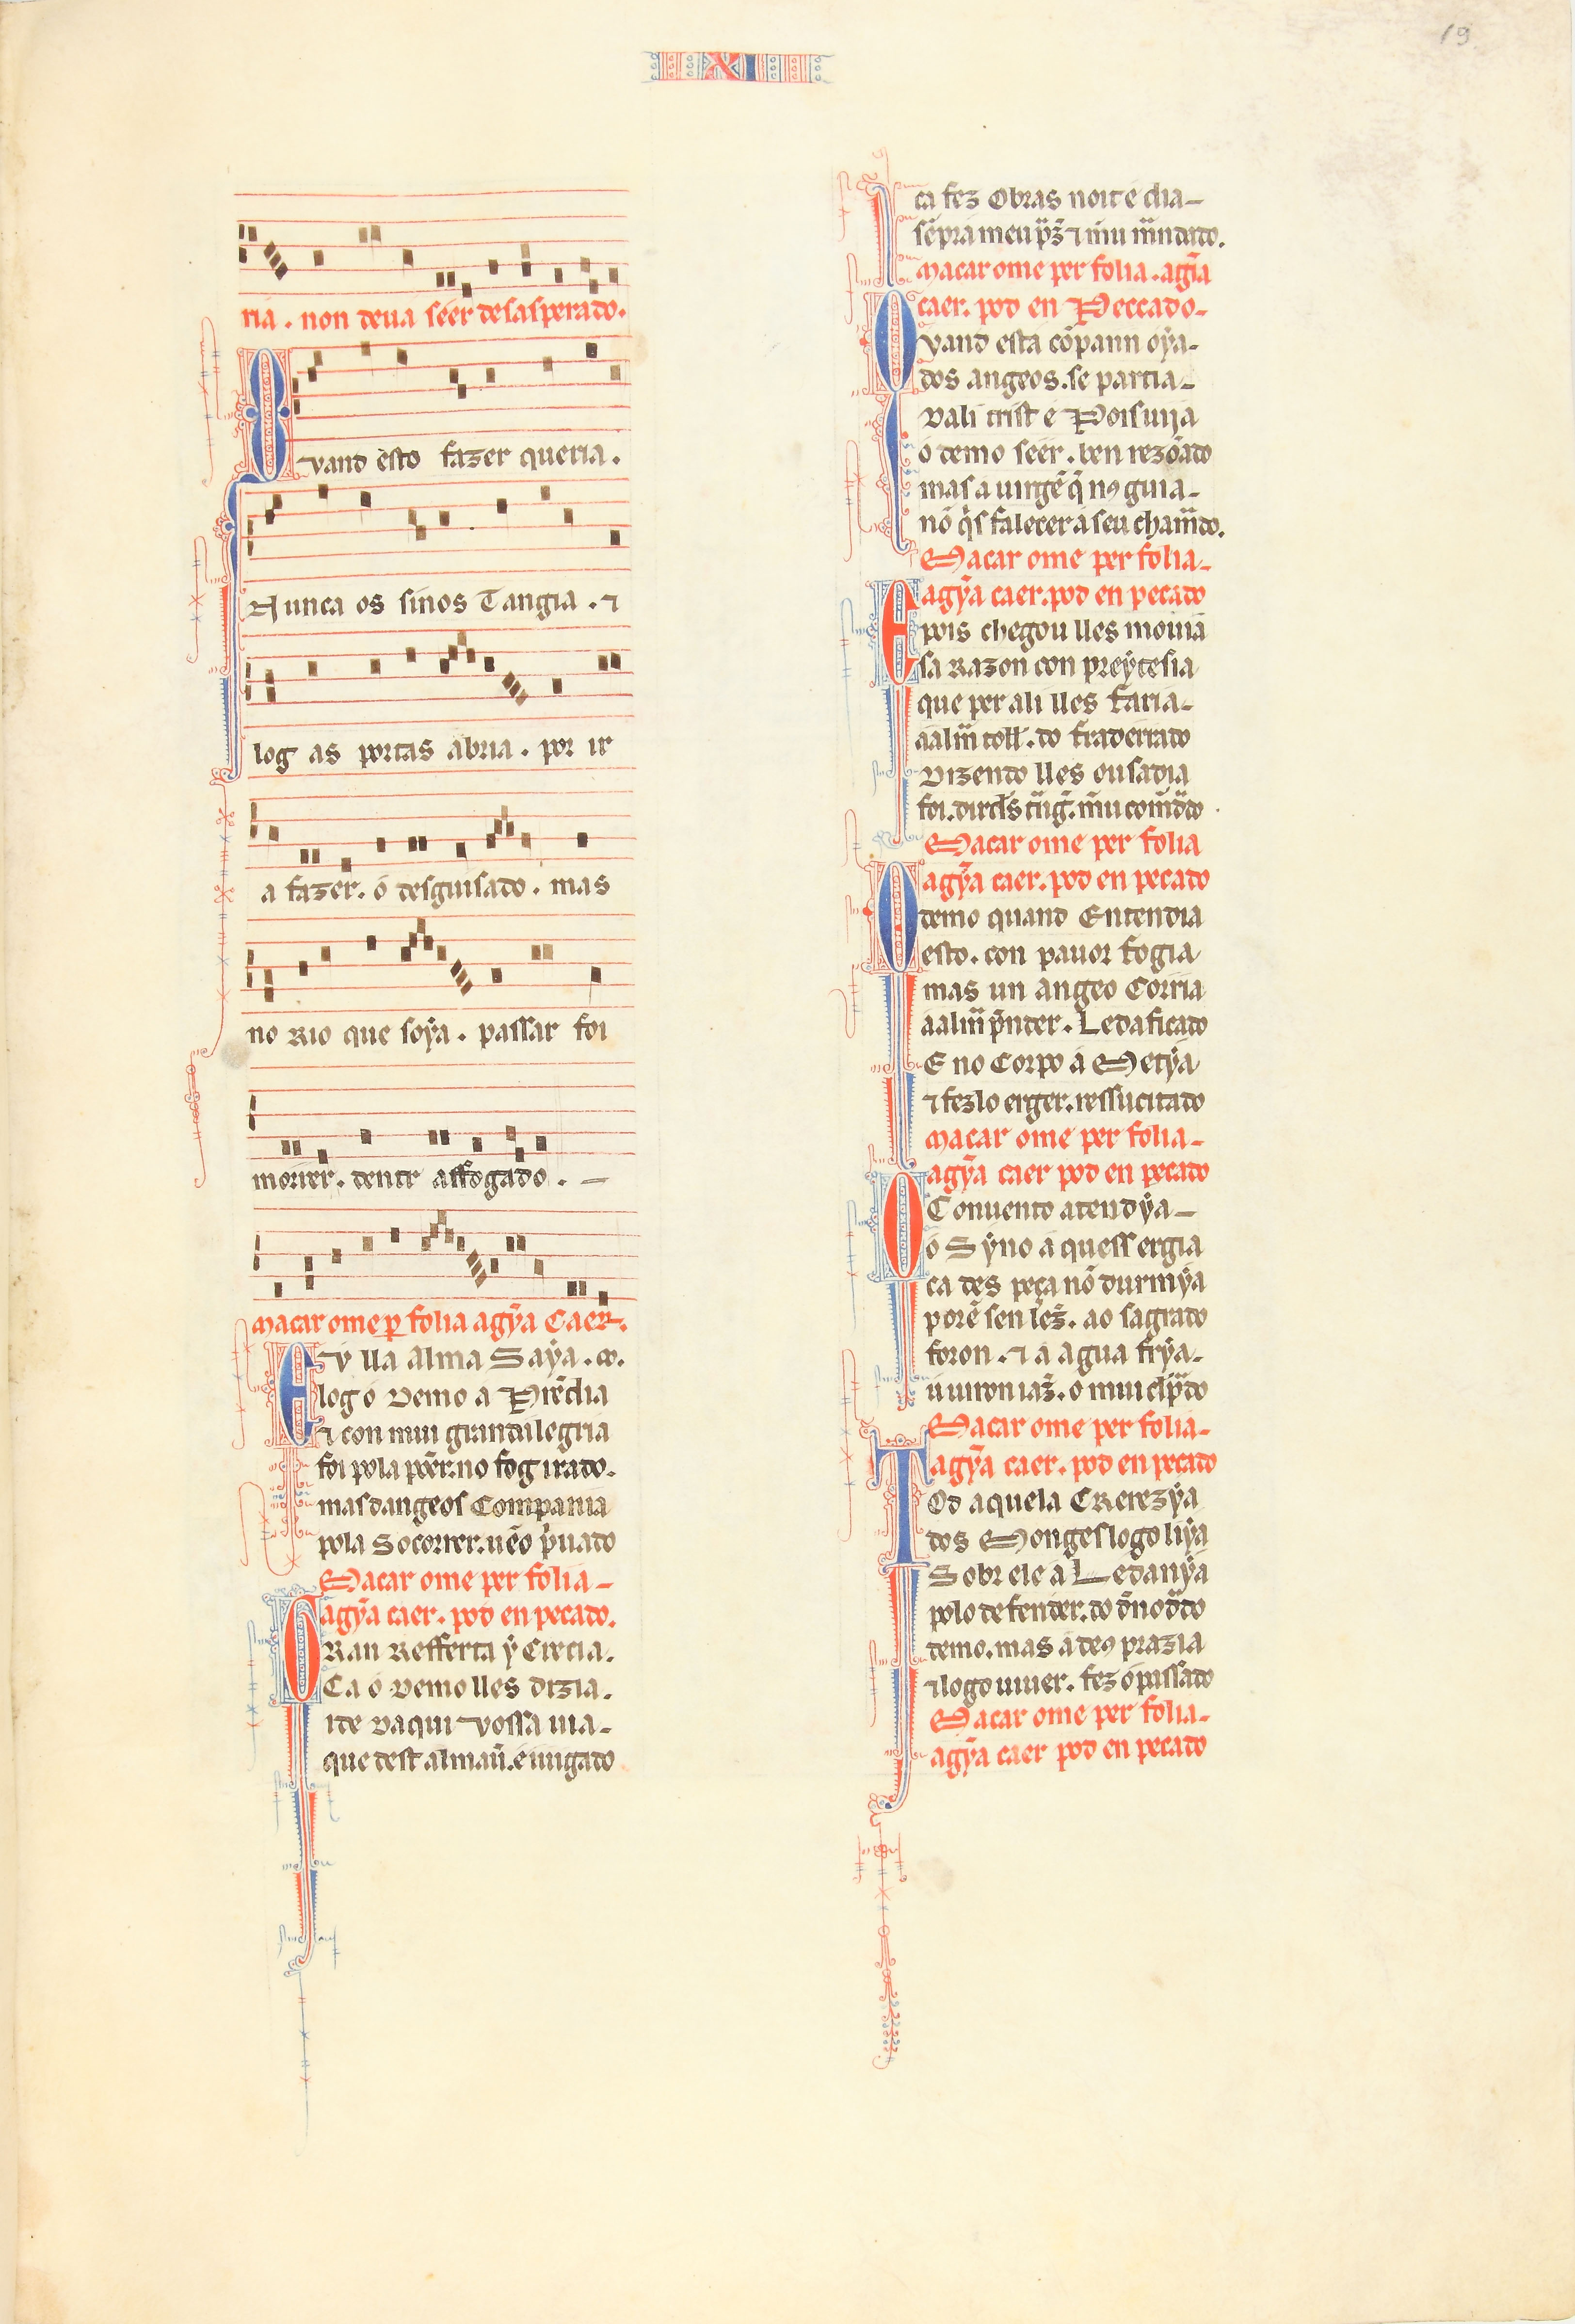 XI
19
ria. non deua séer desasperado.
Quand esto fazer queria.
Nunca os sinos Tangia. ⁊
log as portas abria. por ir
a fazer. ó desguisado. mas
no Rio que soýa. passar foi
morrer. dentr affogado. —
Macar ome ꝑ folia agỹa Caer.
EV lla alma Saýa.
log ó Demo a
⁊ con mui grand alegria
foi pola põer. no fog irado.
mas dangeos Compania
pola Socorrer. uẽo p̃uado
Macar ome per folia –
agỹa caer. pod en pecado.
GRan Refferta ý Crecia.
Ca ó Demo lles dizia.
ide daqui vossa uia –
que dest alma é iuigado
Ca fez Obras noit e dia –
Macar ome per folia. agĩa
caer. pod en Peccado –
QVand esta cõpann oýa –
dos angeos. se partia –
dali trist e
ó demo seer. ben rezõado
mas a uirgẽ q̃ nꝯ guia –
nõ q̃s falecer a seu chamado.
Macar ome per folia –
agỹa caer. pod en pecado
E pois chegou lles mouia
sa Razon con preýtesia
que per ali lles faria –
do frad errado
Dizendo lles ousadia
Macar ome per folia
agỹa caer. pod en pecado
O demo quand Entendia
esto. con pauor fogia
mas un angeo Corria
Led aficado
E no Corpo a Metýa
⁊ fezlo erger. ressucitado
Macar ome per folia –
agỹa caer pod en pecado
O Conuento atendýa –
ó Sýno a quess ergia
ca des peça nõ durmýa
porẽ sen ao sagrado
foron. ⁊ á agua frýa –
Macar ome per folia –
agỹa caer. pod en pecado
TOd aquela CRerezýa
dos Monges logo liýa
Sobr ele a Ledanýa
polo defender. do
demo. mas a deꝯ prazia
⁊ logo uiuer. fez ó passado
Macar ome per folia –
agỹa caer pod en pecado